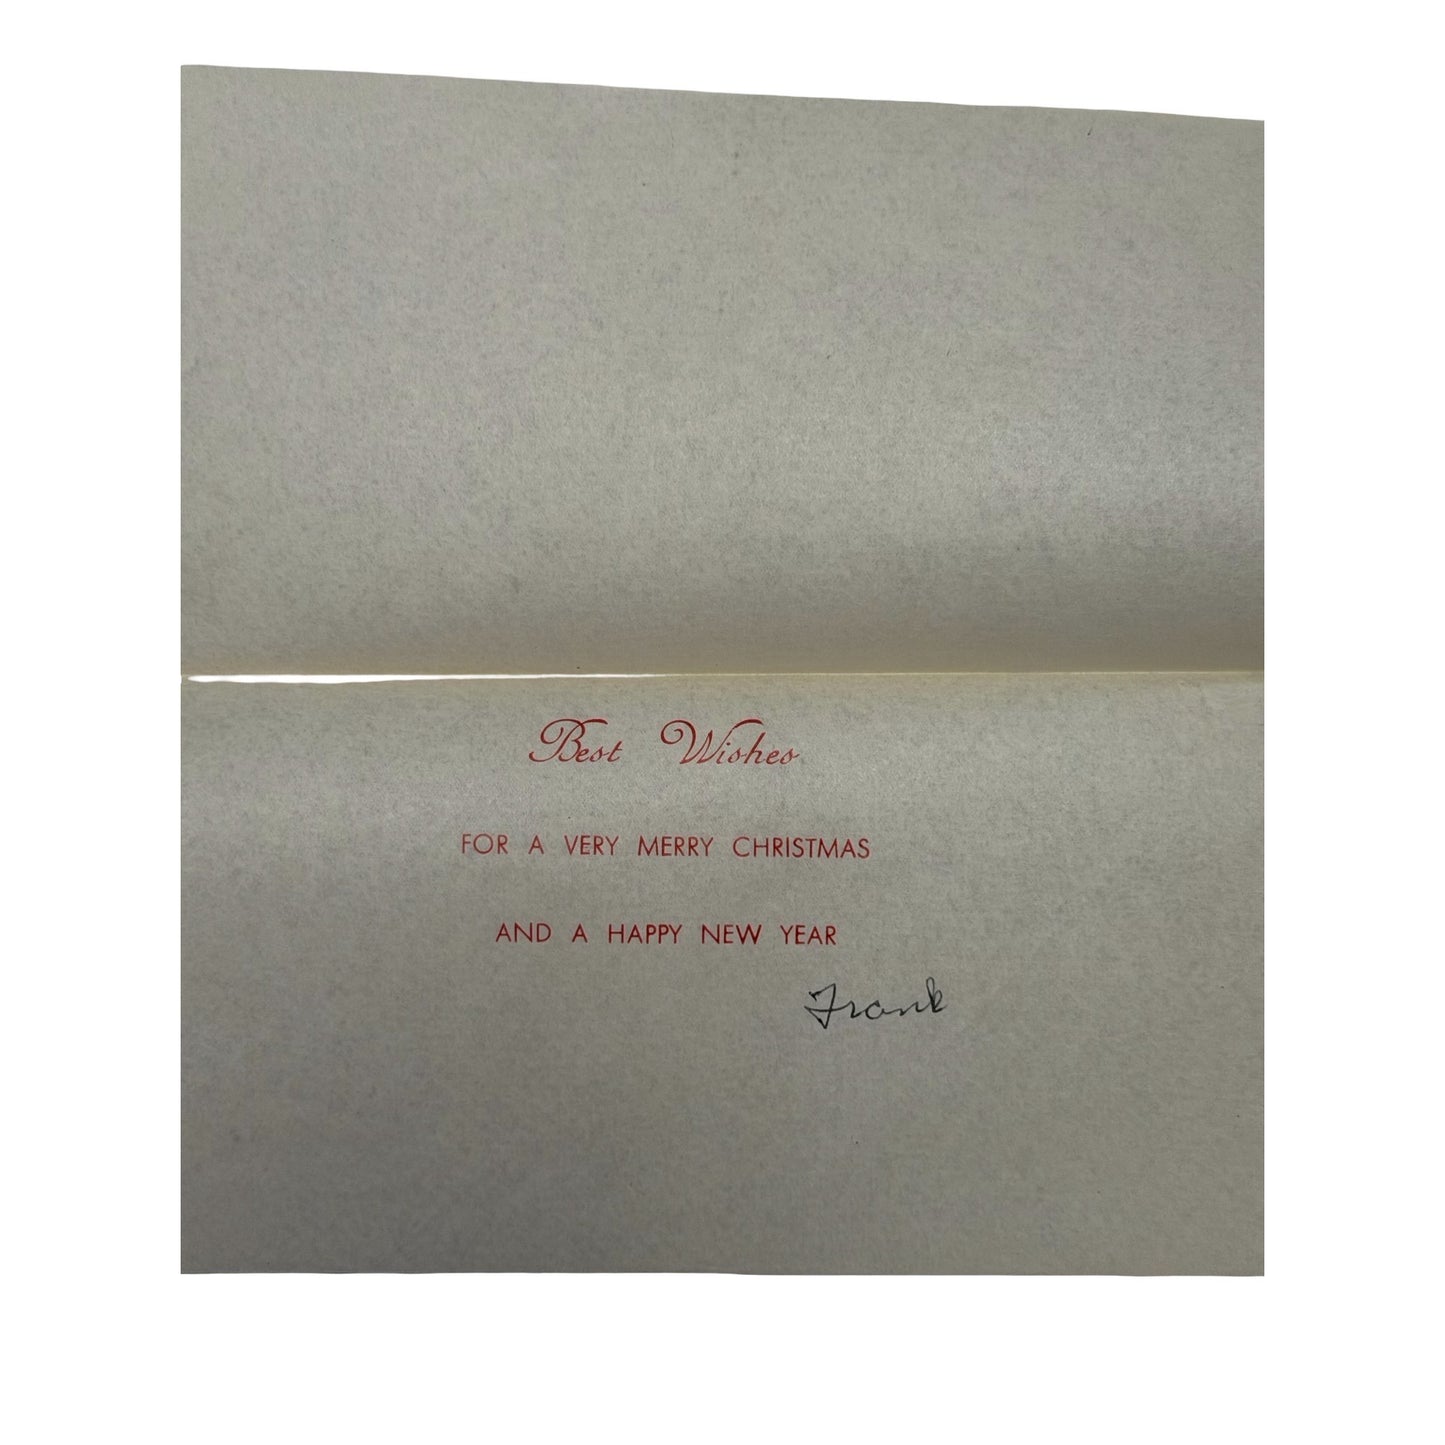 Best Wishes
FOR A VERY MERRY CHRISTMAS
AND A HAPPY NEW YEAR
Frank